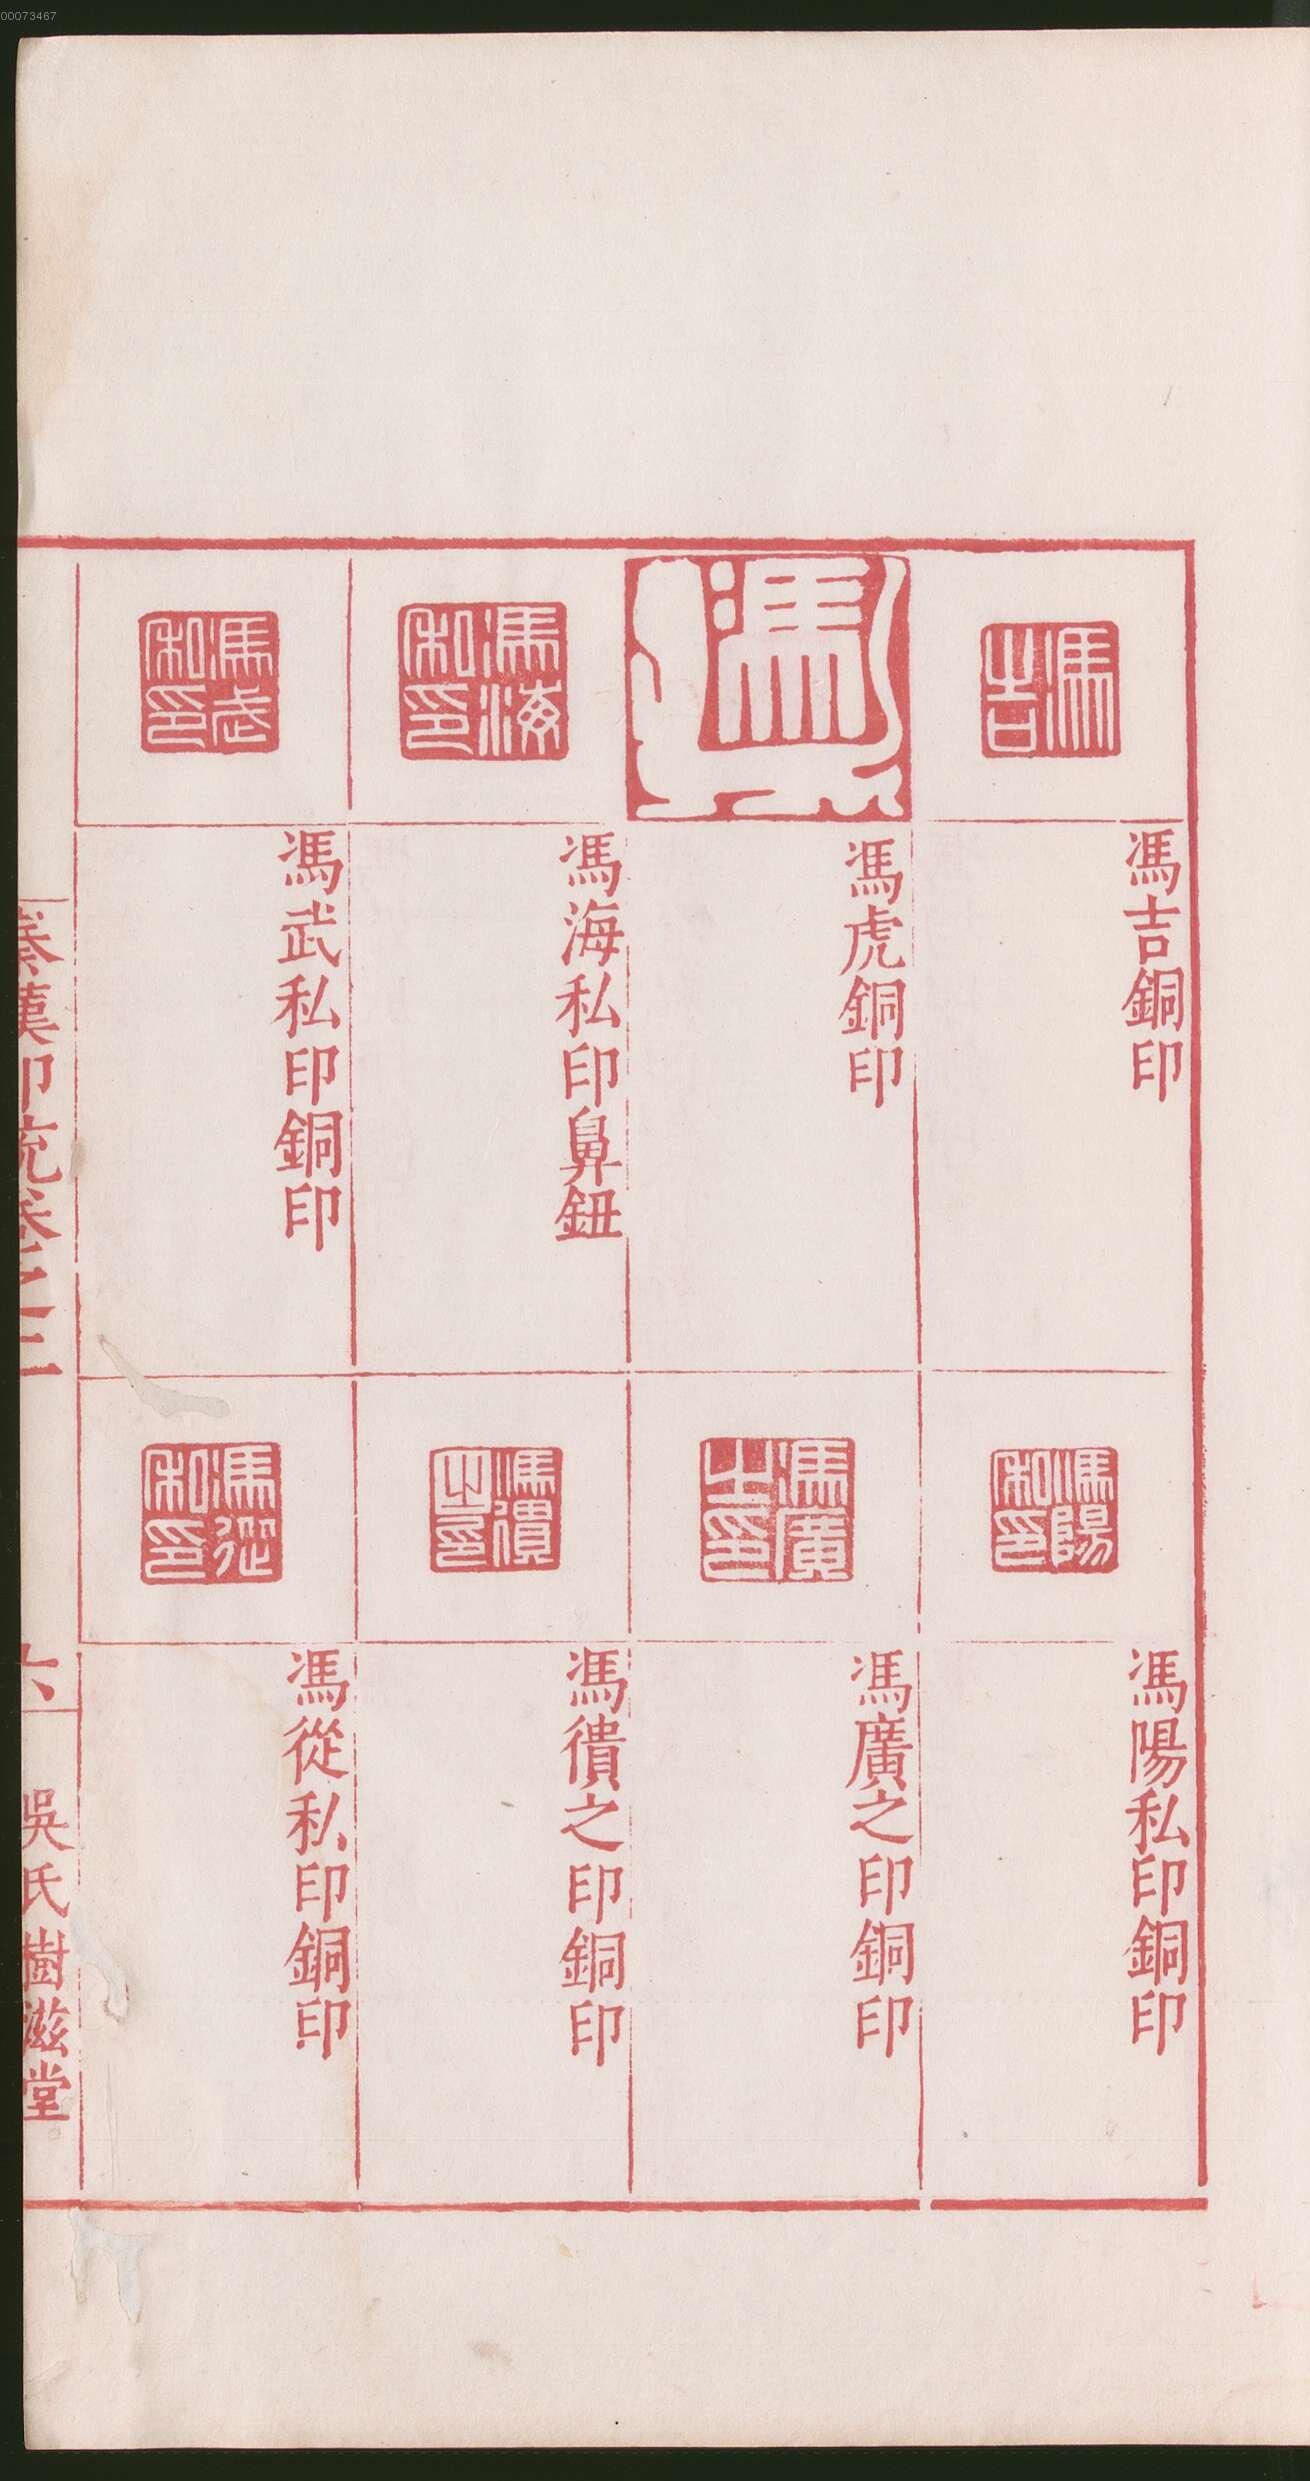 00073467
馮吉
馮吉銅印
馮虎銅印
馮海私印
馮海私印鼻鈕
馮武私印
馮武私印銅印
馮陽私印
馮陽私印銅印
馮廣之印
馮廣之印銅印
馮僓之印
馮僓之印銅印
馮從私印
馮從私印銅印
秦漢印統卷之二
六
吳氏樹滋堂